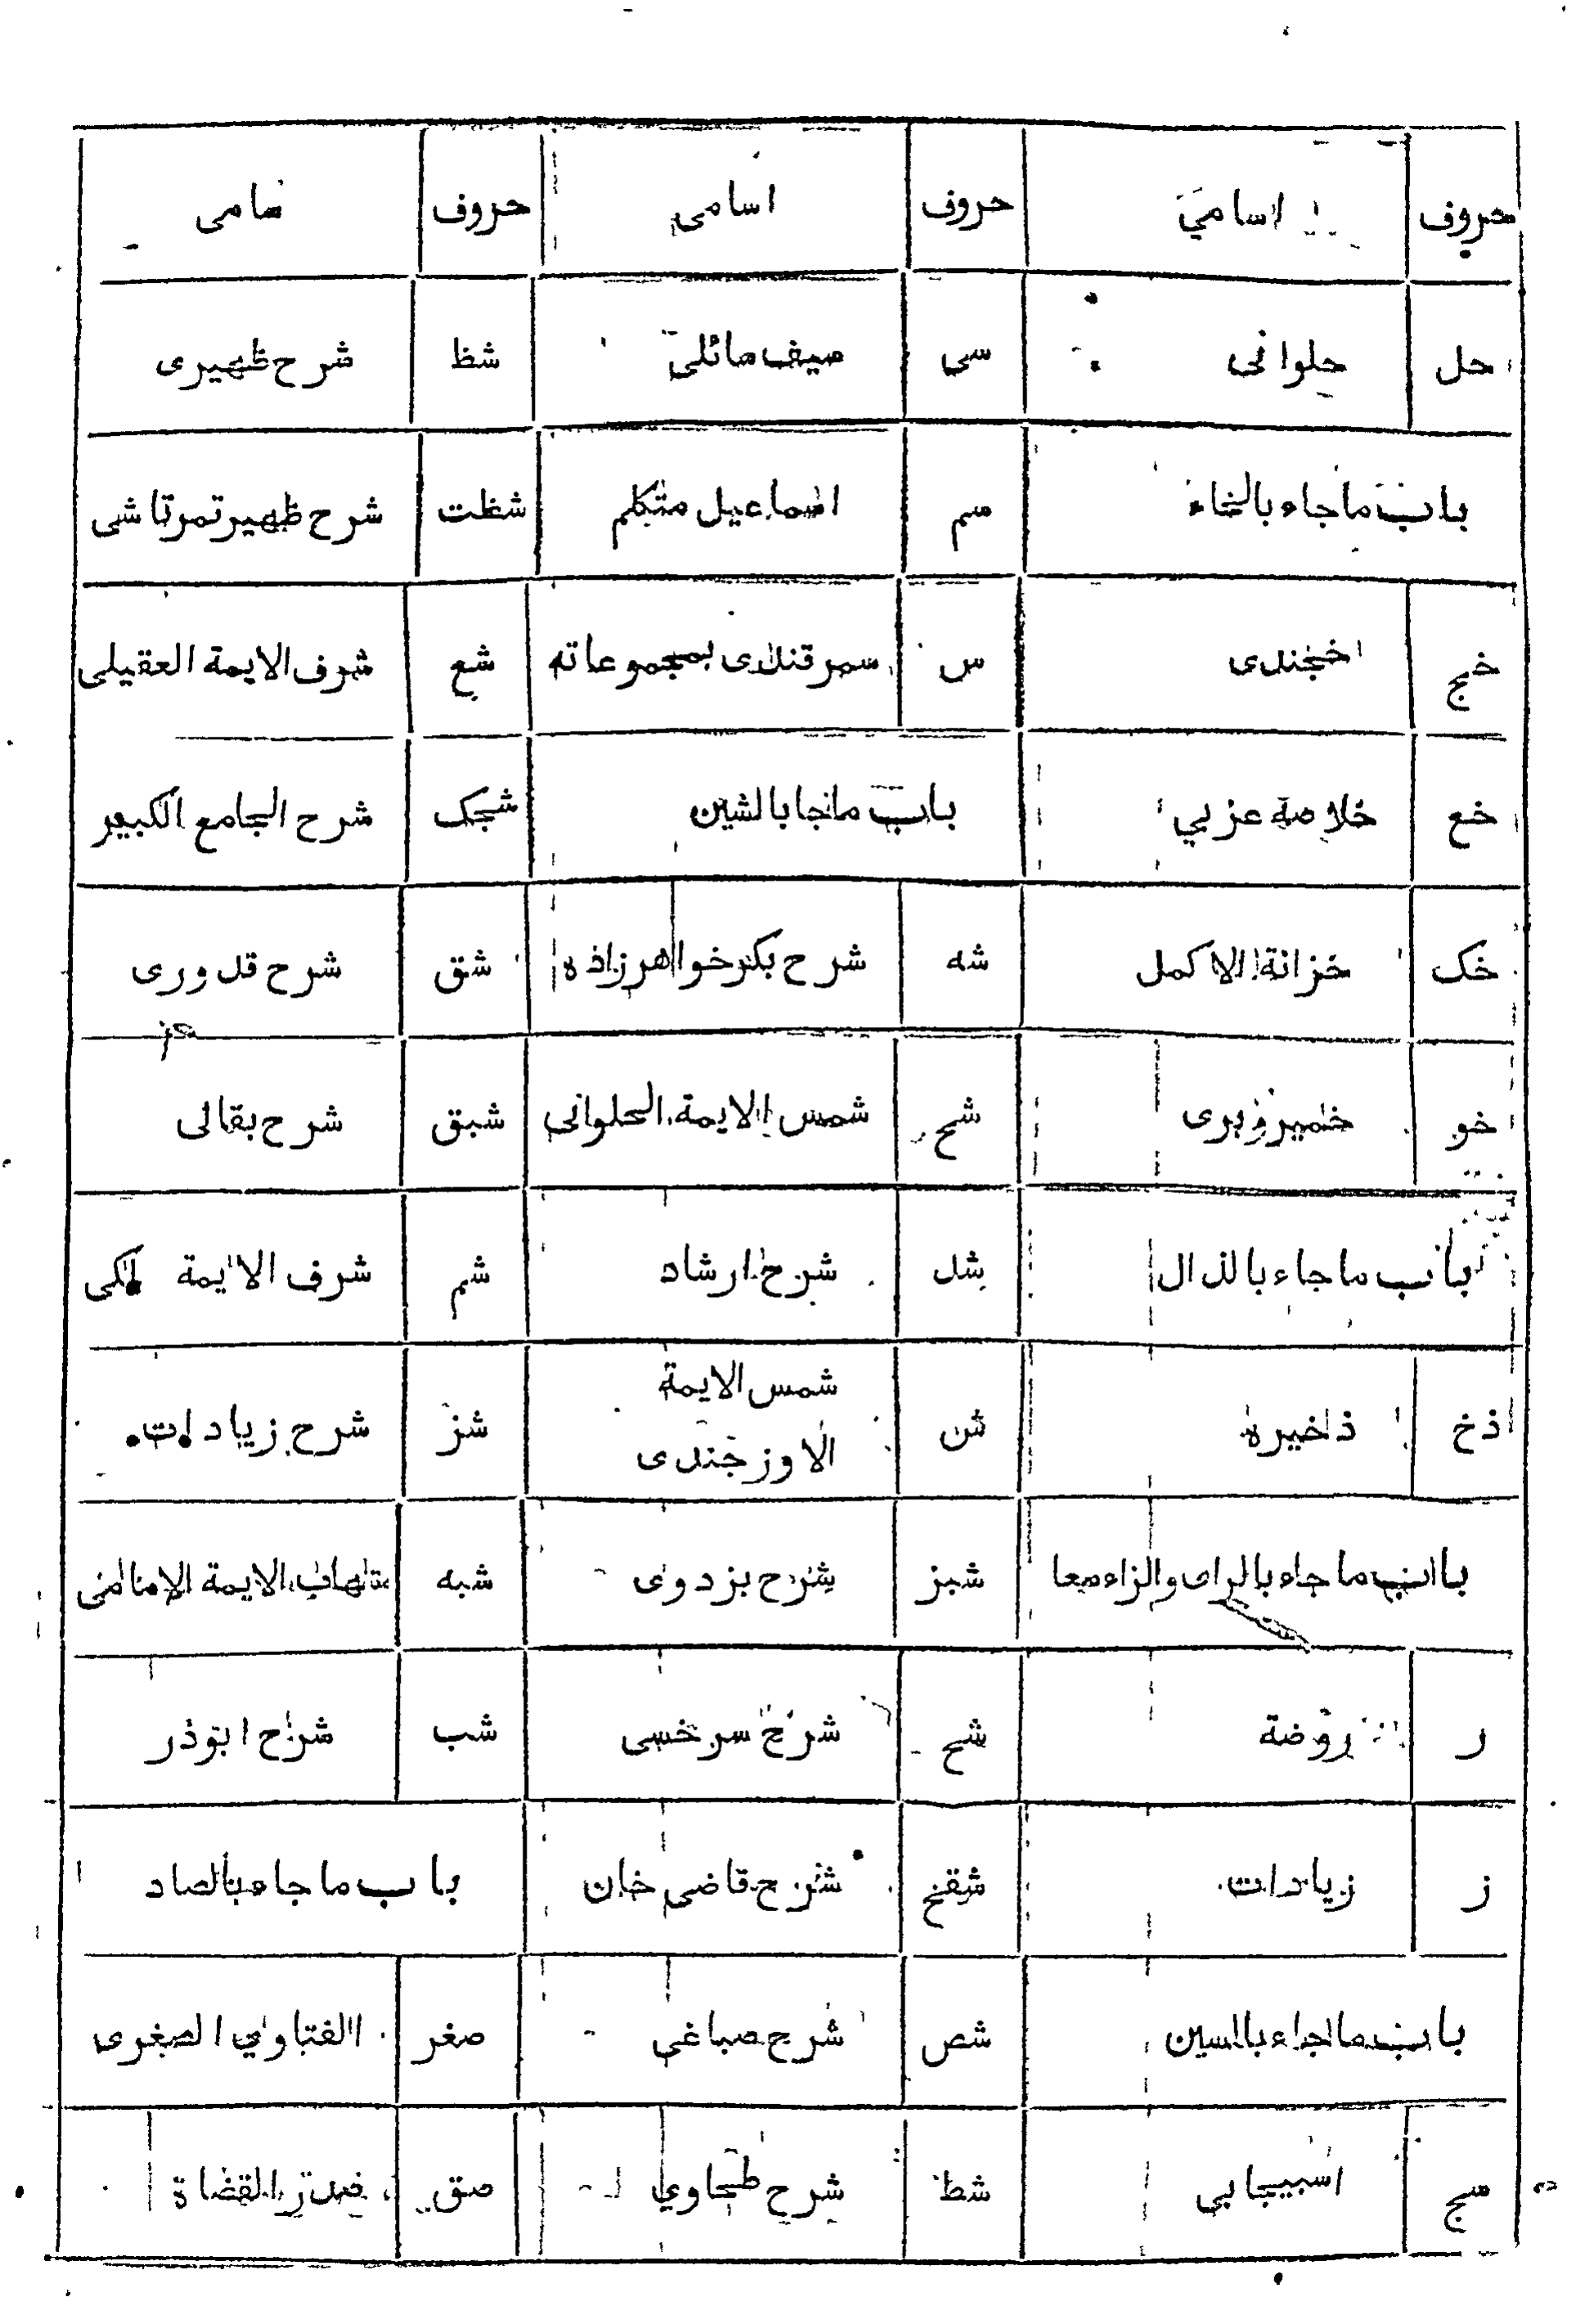 حروف اسامي حروف اسامى حروف سامى
حل حلوانى سى سيف سائلى شظ شرح ظهيرى
باب ماجاء بالخاء سم اسماعيل متكلم شظت شرح ظهير تمرتاشى
خج خجندى س سمرقندى بمجموعاته شع شرف الايمة العقيلى
خع خلاصه عزبي باب ماجا بالشين شجك شرح الجامع الكبير
خك خزانة الاكمل شه شرح بكر خواهرزاده شق شرح قدورى
خو خميروبرى شح شمس الايمة الحلوانى شبق شرح بقالى
باب ماجاء بالذال شد شرح ارشاد شم شرف الايمة مكى
ذخ ذخيره شن شمس الايمة
الاوزجندى شز شرح زيادات
باب ماجاء بالراى والزاء معا شبز شرح بزدوى شبه شهاب الايمة الامامى
ر روضة شح شرح سرخسى شب شرح ابوذر
ز زيادات شقخ شرح قاضى خان باب ماجاء بالصاد
باب ماجاء بالسين شص شرح صباغى صغر الفتاوي الصغرى
سج اسبيجابي شط شرح طحاوي صق صدر القضاة